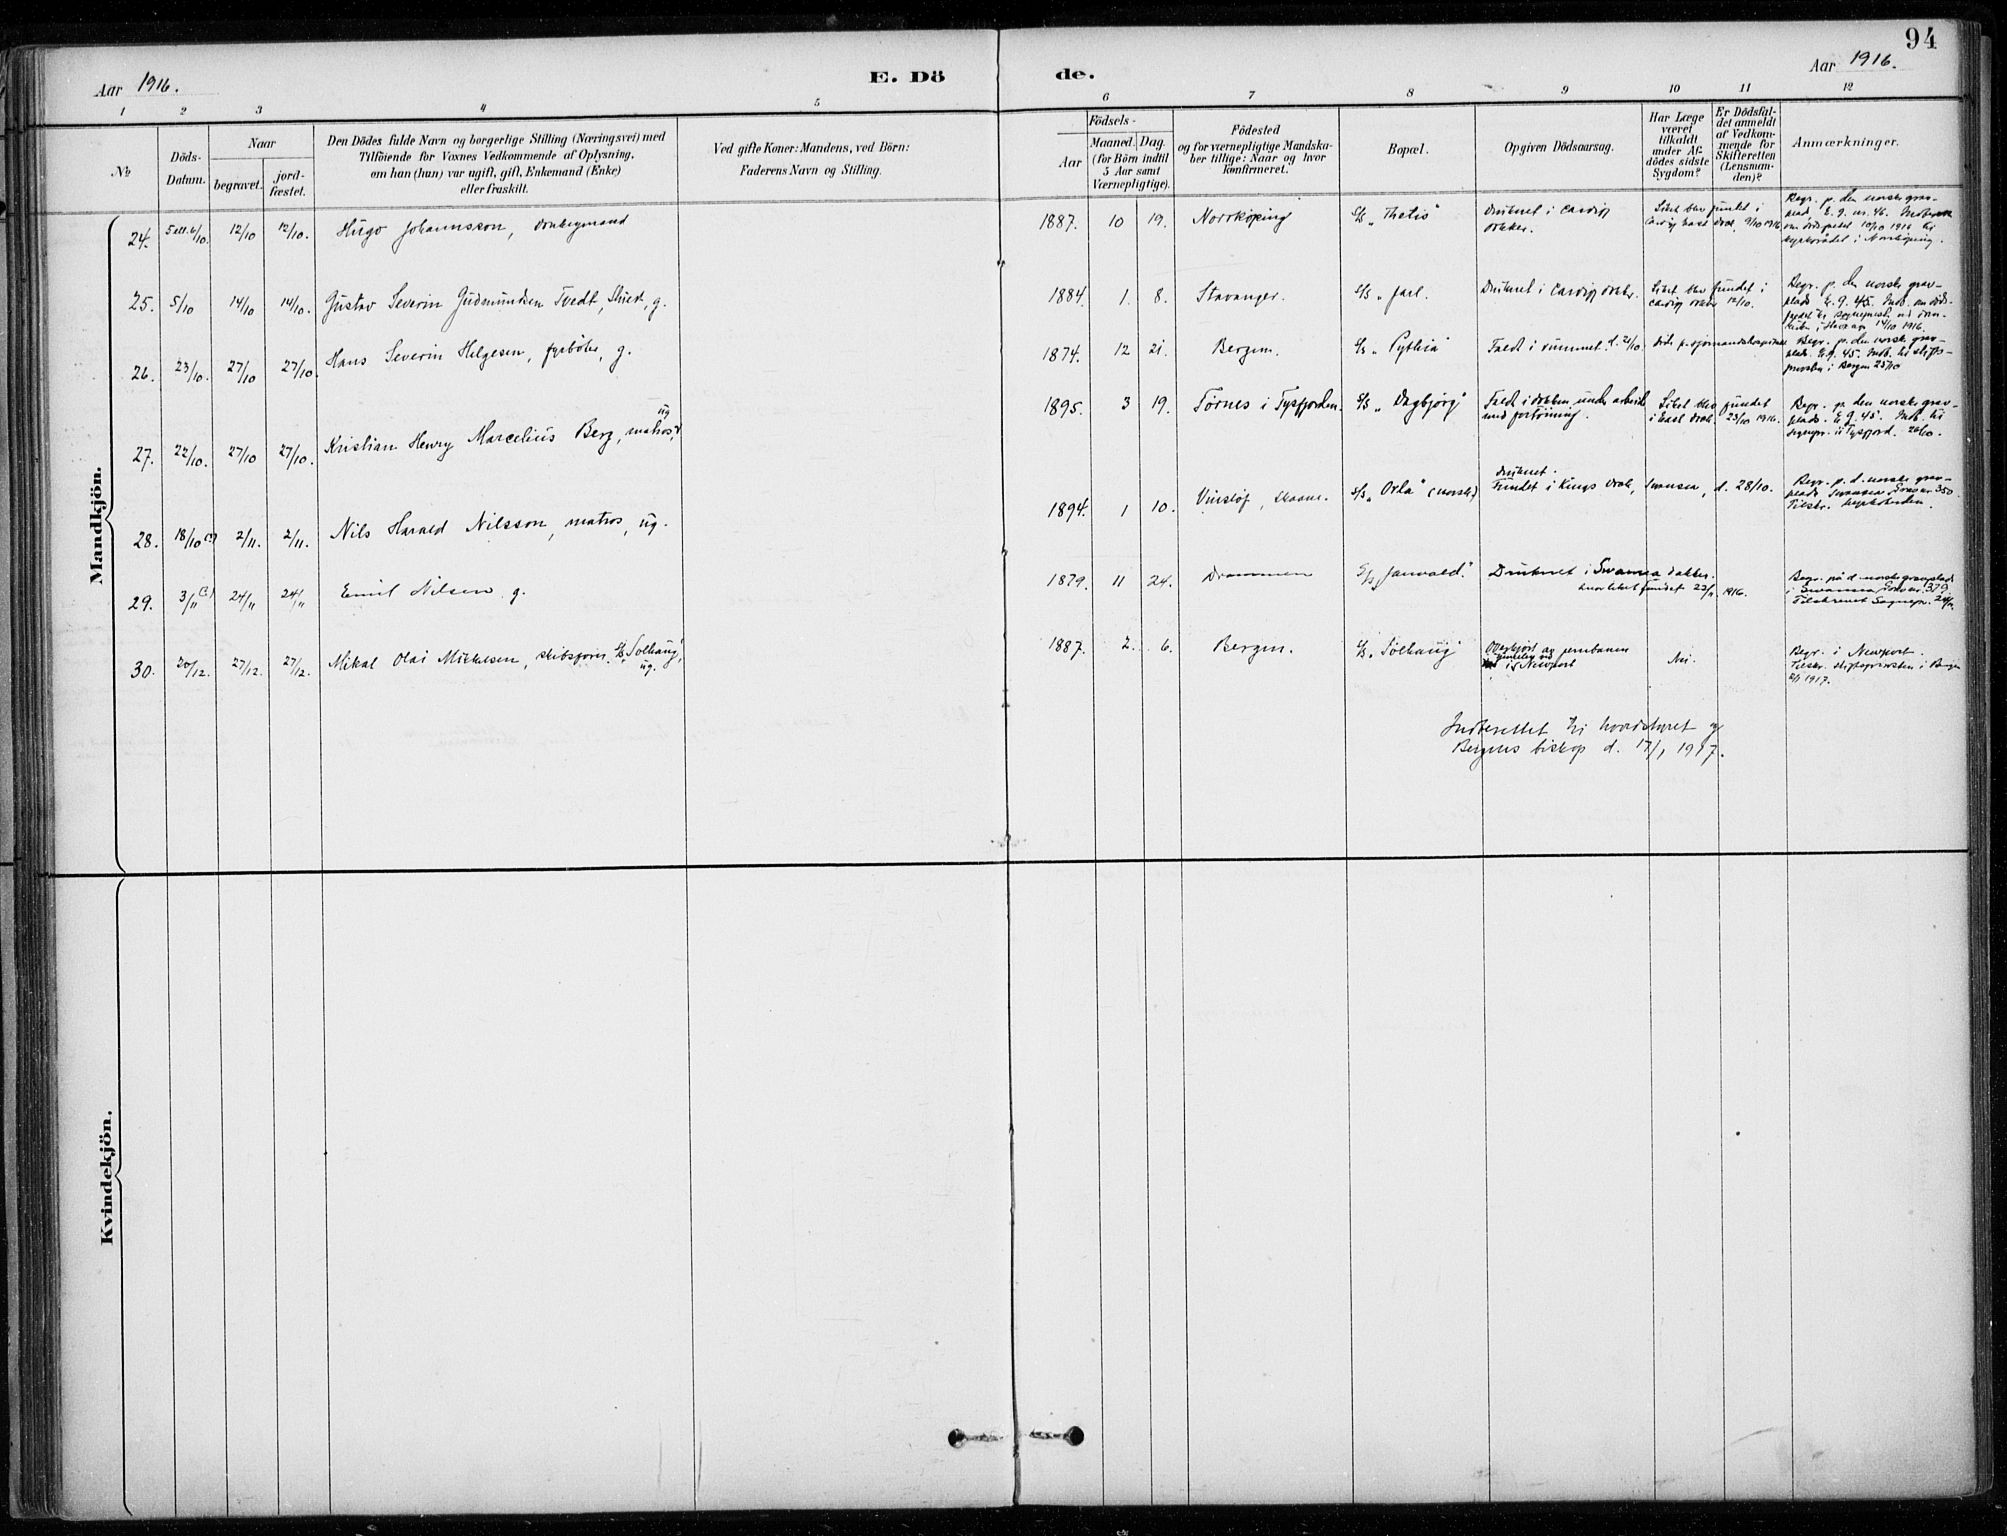 94
Aar 1916.
E. Dö
de.
Aar 1916.
1 2 3 4 5 6 7 8 9 10 11 12
No
Döds-
Datum.
Naar
begravet.
jord-
fæstet.
Den Dödes fulde Navn og borgerlige Stilling (Næringsvei) med
Tilföiende for Voxnes Vedkommende af Oplysning,
om han (hun) var ugift, gift, Enkemand (Enke)
eller fraskilt.
Ved gifte Koner: Mandens, ved Börn:
Faderens Navn og Stilling.
Födsels-
Aar
Maaned. Dag.
(for Börn indtil
5 Aar samt
Værnepligtige).
Födested
og for værnepligtige Mandska-
ber tillige: Naar og hvor
konfirmeret.
Bopæl.
Opgiven Dödsaarsag.
Har Læge
været
tilkaldt
under Af-
dödes sidste
Sygdom?
Er Dödsfal-
det anmeldt
af Vedkom-
mende for
Skifteretten
(Lensman-
den)?
Anmærkninger.
Mandkjön.
24. 5 ell. 6/10 12/10 12/10. Hugo Johannsson, donkeymand 1887. 10 19. Norrköping S/S „Thetis" Druknet i Cardiff
dokker. Liket blev fundet i
Cardiff East dock, 9/10 1916 Begr. p. den norske grav-
plads E. 9. nr. 46.
om dödsfaldet 10/10 1916 til
kyrkorådet i Norrköping.
25. 5/10 14/10 14/10. Gustav Severin Gudmundsen Tvedt, Stuert, g. 1884. 1. 8. Stavanger. S/S „Jarl. Druknet i Cardiff dokker. Liket blev fundet i
Cardiff dokker 12/10. Begr. p. den norske grav-
plads E. 9. 45. Indb. om döds-
14/10 1916.
26. 23/10. 27/10 27/10. Hans Severin Helgesen, fyrböter, g. 1874. 12 21. Bergen. S/S „Pythia" Faldt i rummet d. 21/10. döde p. sjömandshospitalet Begr. p. den norske grav-
plads E. 9. 45. Indb. til stifts-
provsten i Bergen 25/10
27. 22/10. 27/10 27/10. Kristian Henry Marcelius Berg, matros, ug 1895. 3 19. Törnes i Tysfjorden. S/S „Dagbjörg" Faldt i dokken under arbeide
med fortöining. Liket blev fundet
i East dock 23/10 1916. Begr. p. den norske grav-
plads. E. 9. 45. Indb. til
sognepr. i Tysfjord. 26/10.
28. 18/10 (?) 2/11. 2/11. Nils Harald Nilsson, matros, ug. 1894. 1 10. Vinslöf, Skaane. S/S „Orla" (norsk) Druknet.
Fundet i Kings dock, Swansea, d. 28/10. Begr. p. d. norske grav-
plads Swansea Grav nr. 350.
29. 3/11 (?) 24/11 24/11 Emil Nilsen, g. 1879. 11 24. Drammen S/S „Janvald." Druknet i Swansea dokker.
hvor liket fundet 23/11 1916. Begr. på d. norske gravplads
i Swansea Grav nr. 379
Tilskrevet Sognepr. 24/11
30. 20/12. 27/12. 27/12. Mikal Olai Mickelsen, skibsförer S/S „Solhaug", ug. 1887. 2. 6. Bergen. S/S „Solhaug" Overkjört av jernbanen
i Newport Nei. Begr. i Newport.
Tilskr. stiftsprovsten i Bergen
2/1 1917.
Indberettet til hovedstyret og
Bergens biskop d. 17/1 1917.
Kvindekjön.